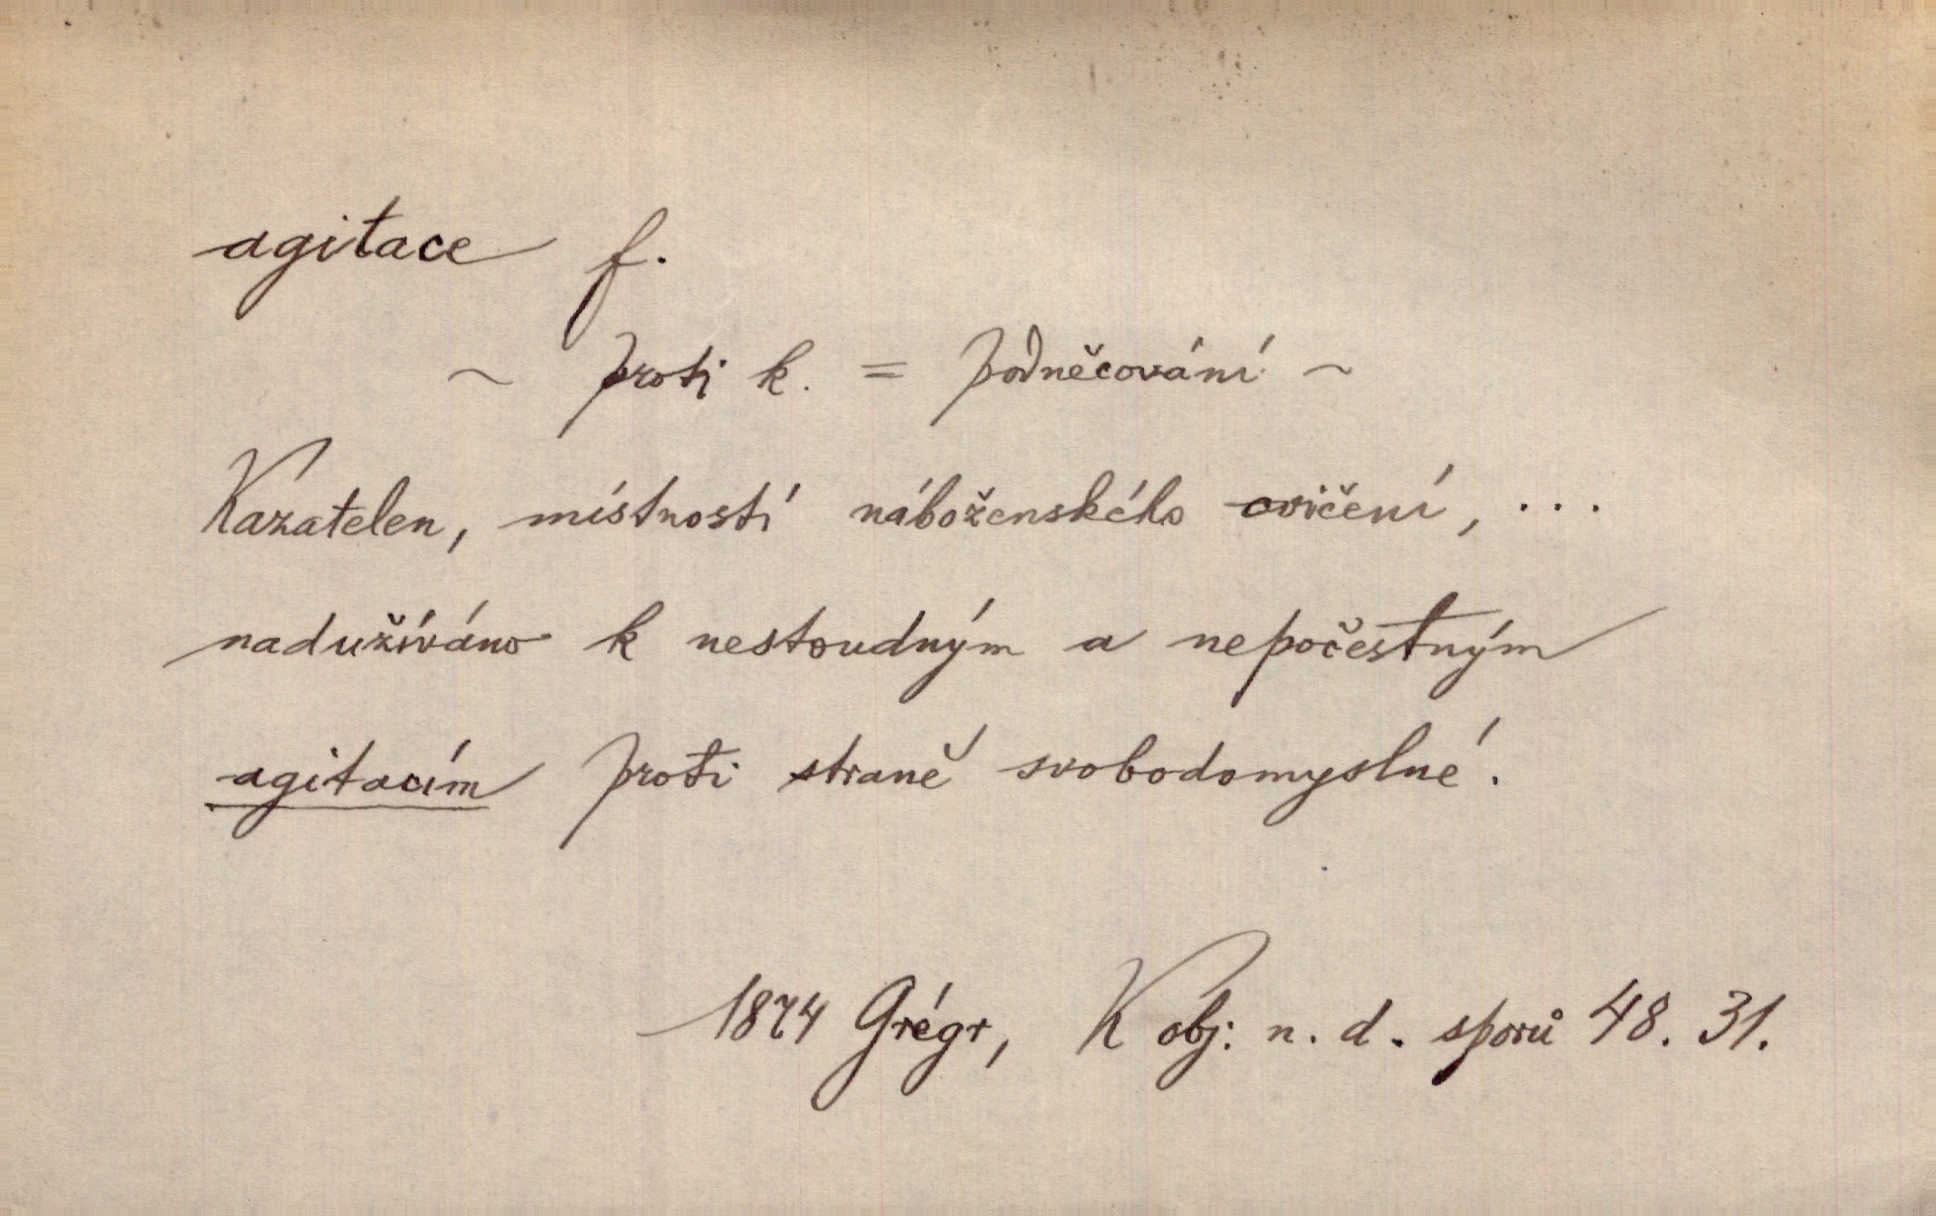 agitace f.
~ proti k. = podněcování ~
Kazatelen, místností náboženského cvičení, ...
nadužíváno k nestoudným a nepočestným
agitacím proti straně svobodomyslné.
1874 Grégr, K obj: n. d. sporů 48. 31.